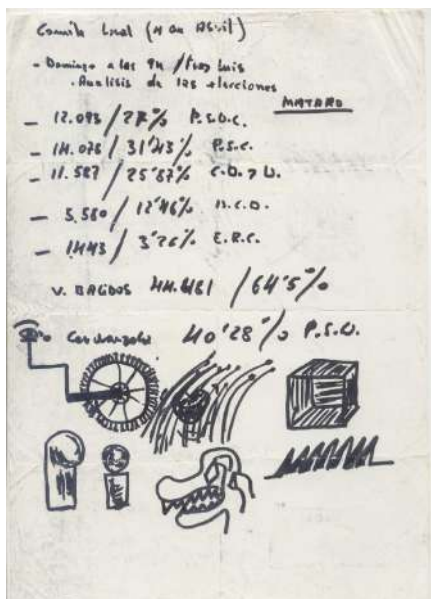 Comité Local (4 de Abril)
- Domingo a las 9h / Fray Luis
- Analisis de las elecciones
MATARO
- 12.093 / 27% P.S.U.C.
- 14.076 / 31'43% P.S.C.
- 11.587 / 25'87% C.D. y U.
- 5.580 / 12'46% U.C.D.
- 1.443 / 3'22% E.R.C.
V. 44.6161 / 64'5%
40'28% P.S.U.